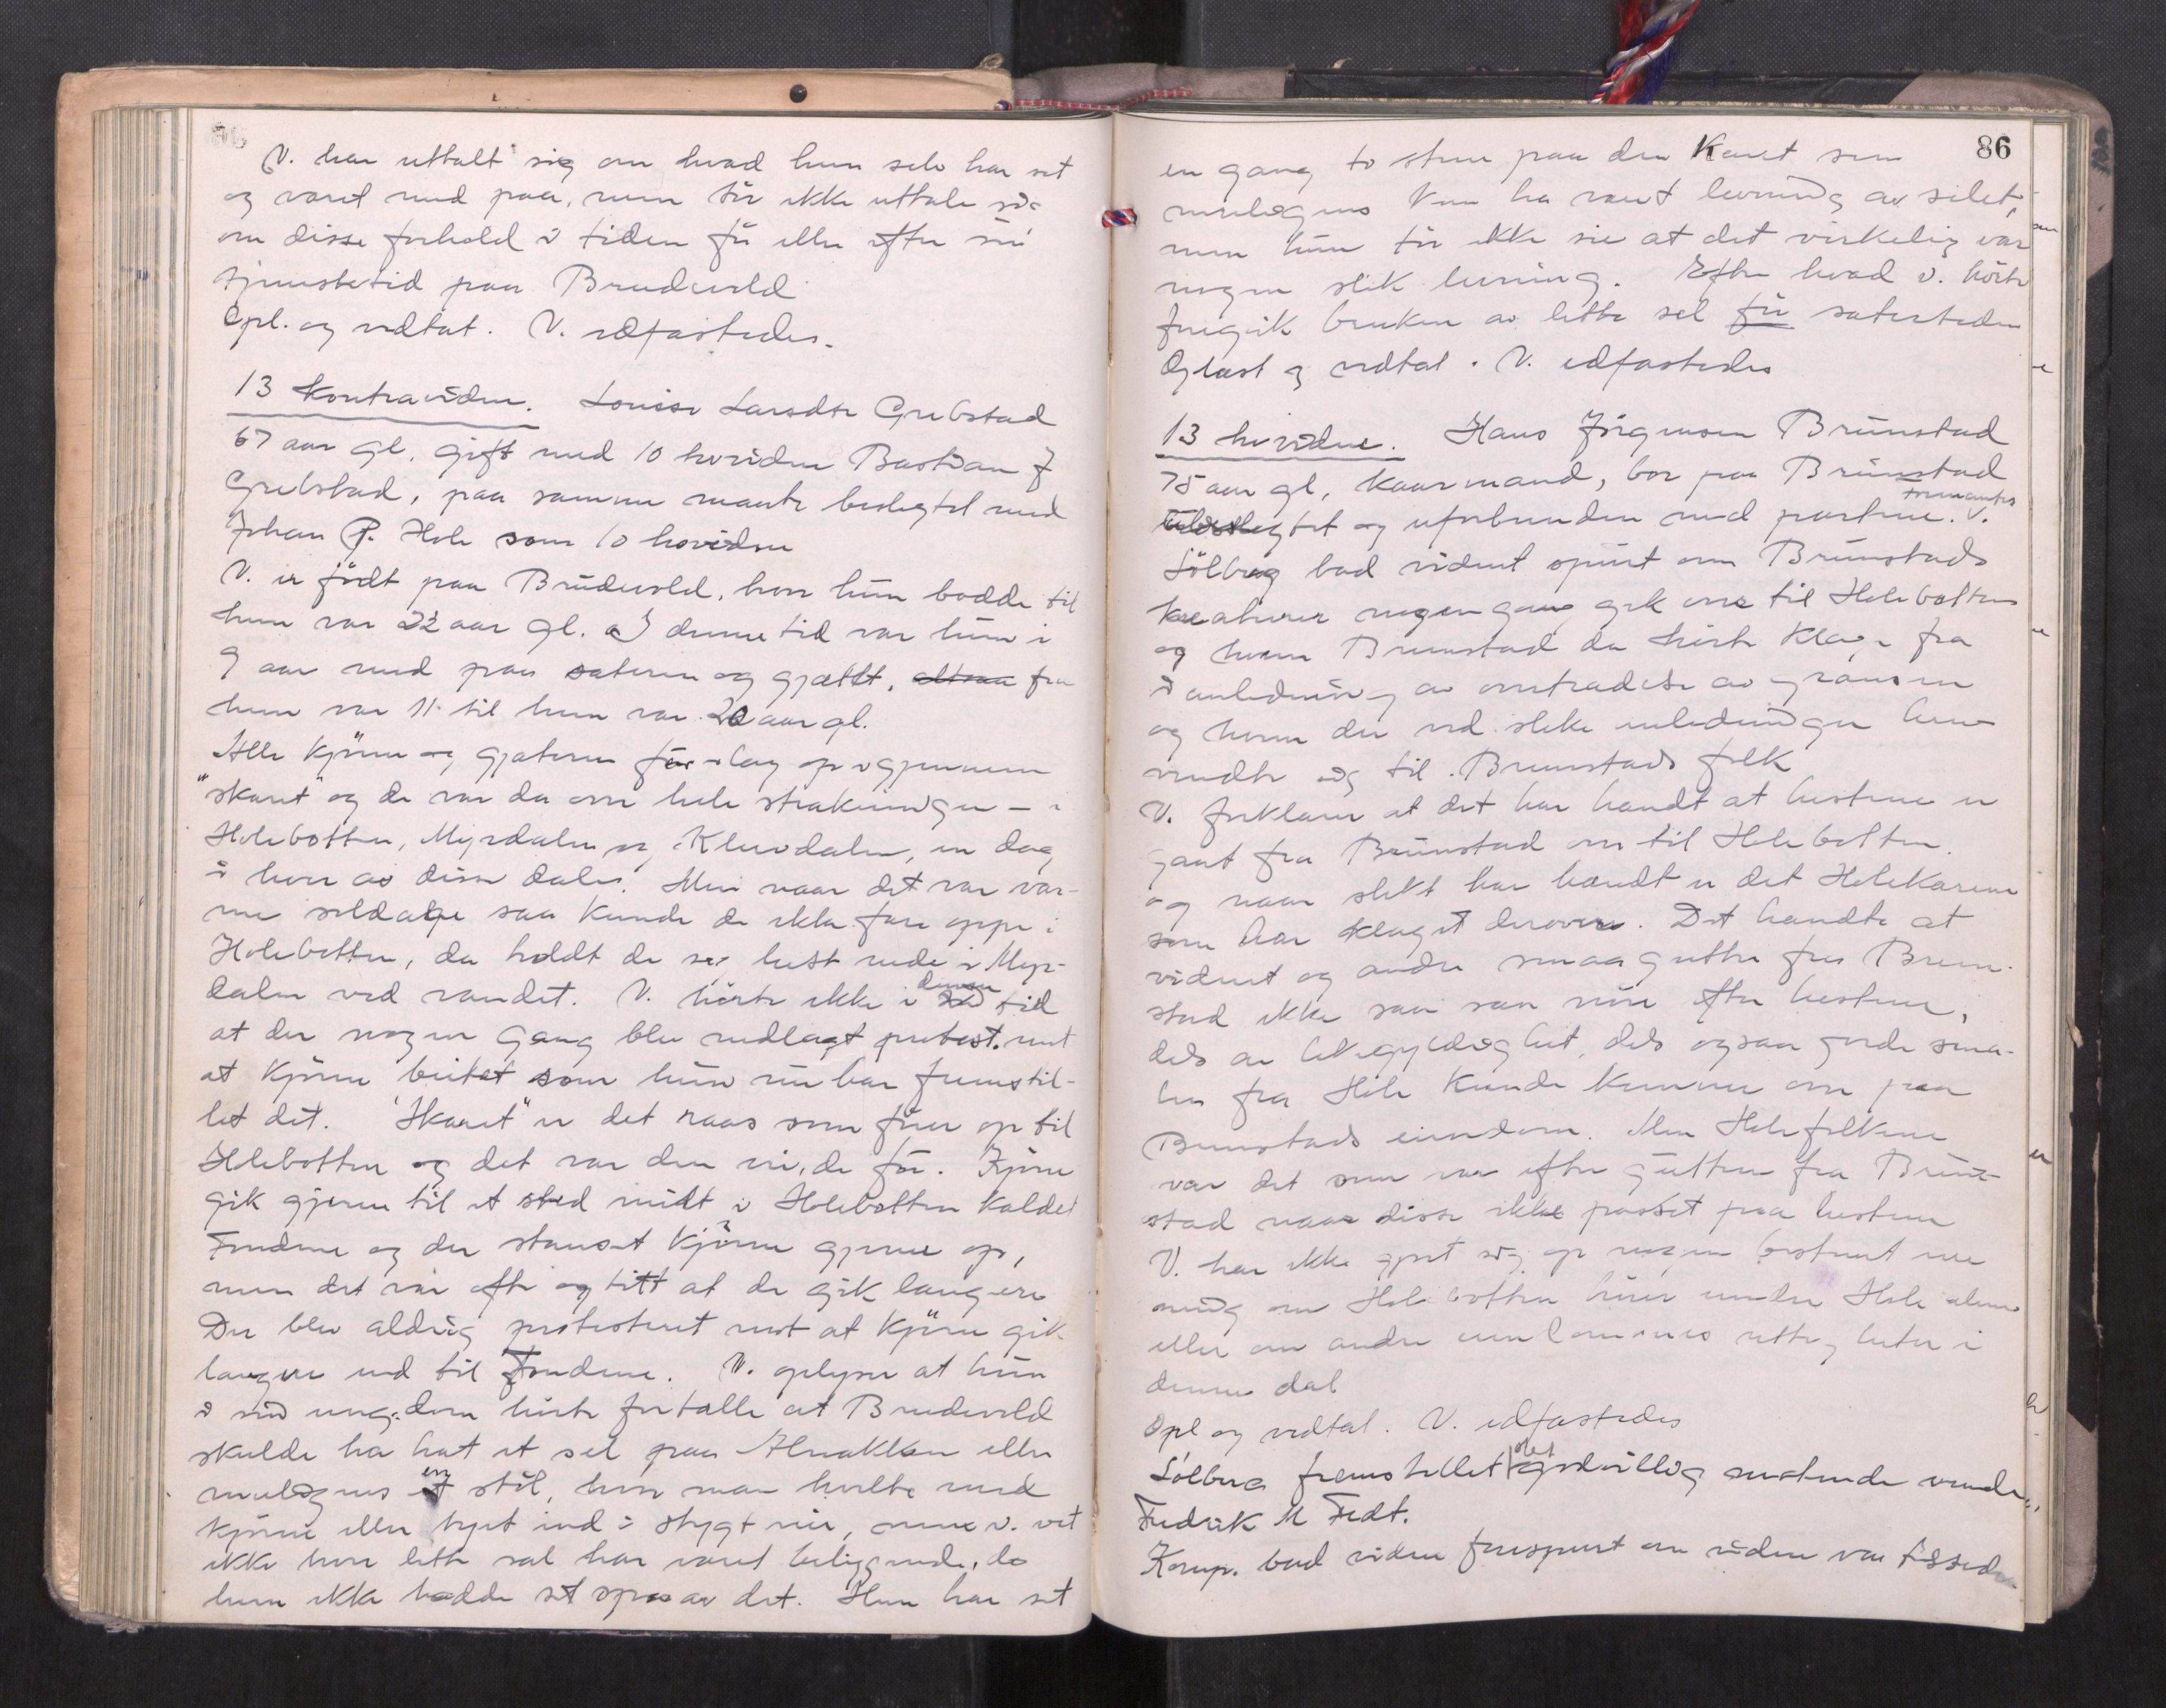 V. har uttalt sig om hvad hun selv har set
og været med paa, men tör ikke uttale sig
om disse forhold i tiden för eller efter sin
tjenestetid paa Brudevold
Opl. og vedtat. V. edfæstedes.
13 kontravidne. Lovise Larsdtr Grebstad
67 aar gl. gift med 10 hovidne Bastian J
Grebstad, paa samme maate beslegtet med
Johan P. Hole som 10 hovidne
V. er födt paa Brudevold, hvor hun bodde til
hun var 22 aar gl. I denne tid var hun i
9 aar med paa sæteren og gjætet, altsaa fra
hun var 11 til hun var 20 aar gl.
Alle kjörne og gjæterne för i lag op igjennem
"skaret" og de var da over hele strækningen - i
Holebotten, Myrdalen og Kluvdalen, en dag
i hver av disse daler. Men naar det var var-
me soldage saa kunde de ikke fare oppe i
Holebotten, da holdt de sig helst nede i Myr-
dalen ved vandet. V. hörte ikke i denne tid
at der nogen gang blev nedlagt protest mot
at kjörne beitet som hun nu har fremstil-
let det. "Skaret" er det raas som förer op til
Holebotten og det var den vei, de för. Kjörne
gik gjerne til et sted midt i Holebotten kaldet
Fondene og der stanset kjörne gjerne op,
men det var ofte og titt at de gik længere
Der blev aldrig protestert mot at kjörne gik
længere ind til Fondene. V. oplyser at hun
i sin ungdom hörte fortælle at Brudevold
skulde ha hat et sel paa Alnakken eller
muligens en stöl, hvor man hvilte med
kjörne eller tyet ind i stygt veir, men v. vet
ikke hvor dette sæl har været beliggende, da
hun ikke hadde set spor av det. Hun har set
86
en gang to stene paa den Kant som
muligens kan ha været levning av selet,
men hun tör ikke sie at det virkelig var
nogen slik levning. Efter hvad v. hörte
foregik bruken av dette sel för sæterstiden
Oplæst og vedtat. V. edfæstedes
13 hovidne. Hans Jörgensen Brunstad
75 aar gl, kaarmand, bor paa Brunstad
ubeslegtet og uforbunden med partene. V. formantes
Sölberg bad vidnet spurt om Brunstads
kreaturer nogen gang gik over til Holebotten
og hvem Brunstad da hörte klage fra
i anledning av overtrædelse av grænsen
og hvem der ved slike anledninger hen-
vendte sig til Brunstads folk
V. forklarer at det har hændt at hestene er
gaat fra Brunstad over til Holebotten.
og naar slikt har hændt er det Holekarene
som har klaget derover. Det hændte at
vidnet og andre smaagutter fra Brun-
stad ikke saa saa nöie efter hestene,
dels av likegyldighet, dels ogsaa fordi sma-
len fra Hole kunde komme over paa
Brunstads eiendom. Men Holefolkene
var det som var efter gutten fra Brun-
stad naar disse ikke passet paa hestene
V. har ikke gjort sig op nogen bestemt me
ning om Holebotten hörer under Hole alene
eller om andre  rettigheter i
denne dal
Opl og vedtat. V. edfæstedes
Sölberg fremstillet  godvillig möttende vidne
Fredrik M Fedt.
Komp. bad vidnet forespurt om vidnet var tilstede